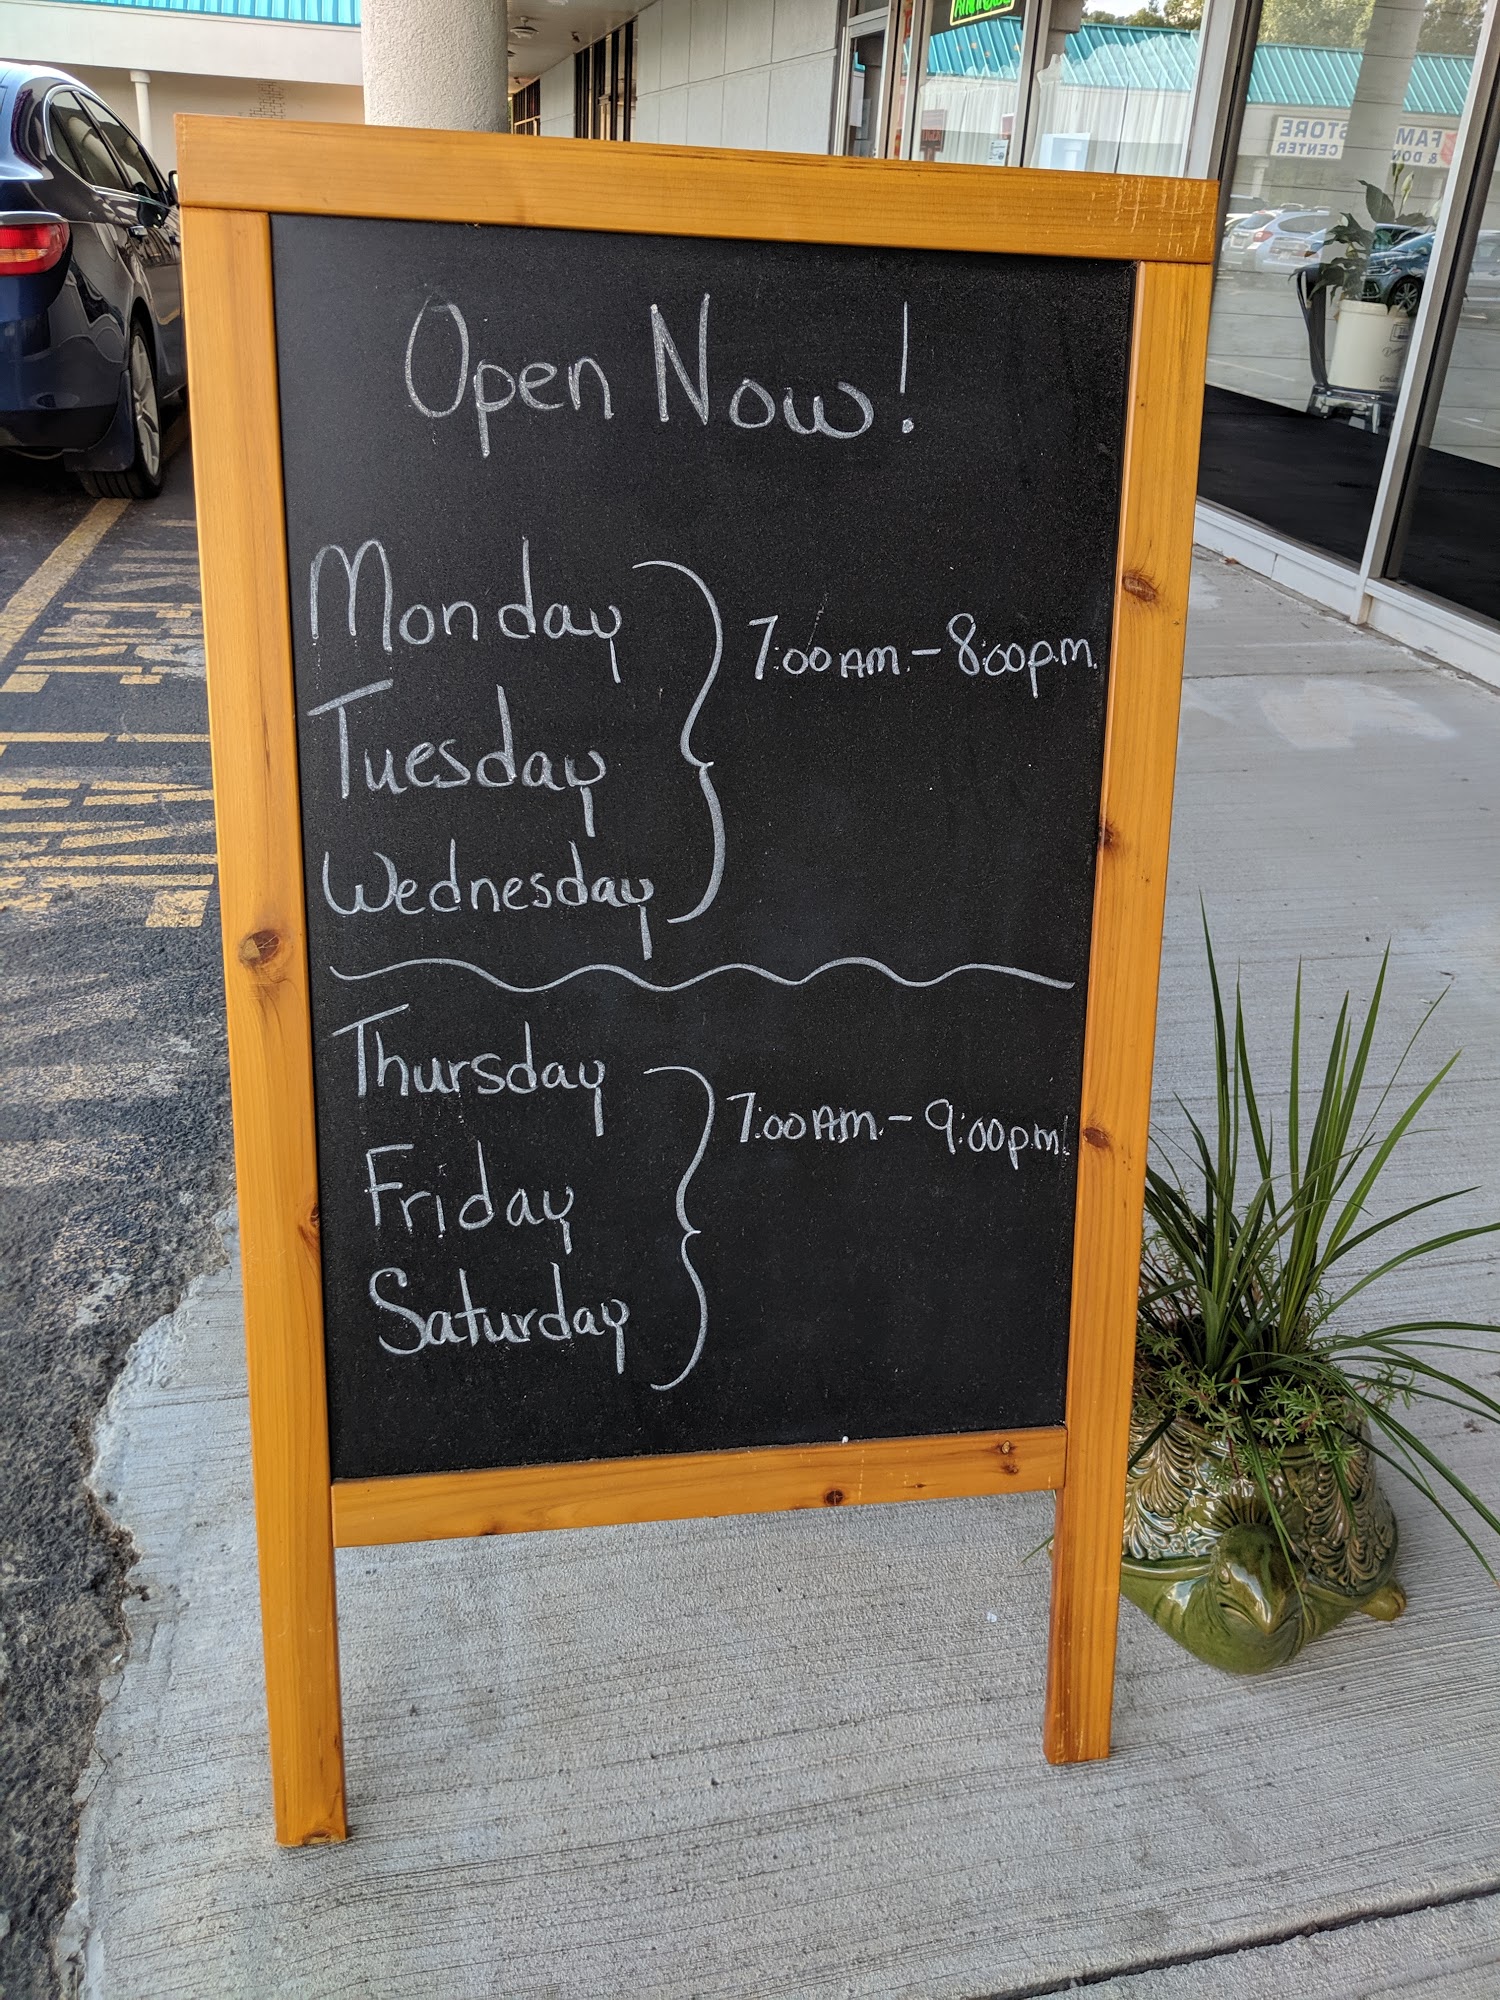 Open Now!
Monday
7:00 AM. - 8:00 p.m.
Tuesday
Wednesday
Thursday
7:00 AM. - 9:00 p.m.
Friday
Saturday
FAM STORE
& DON CENTER